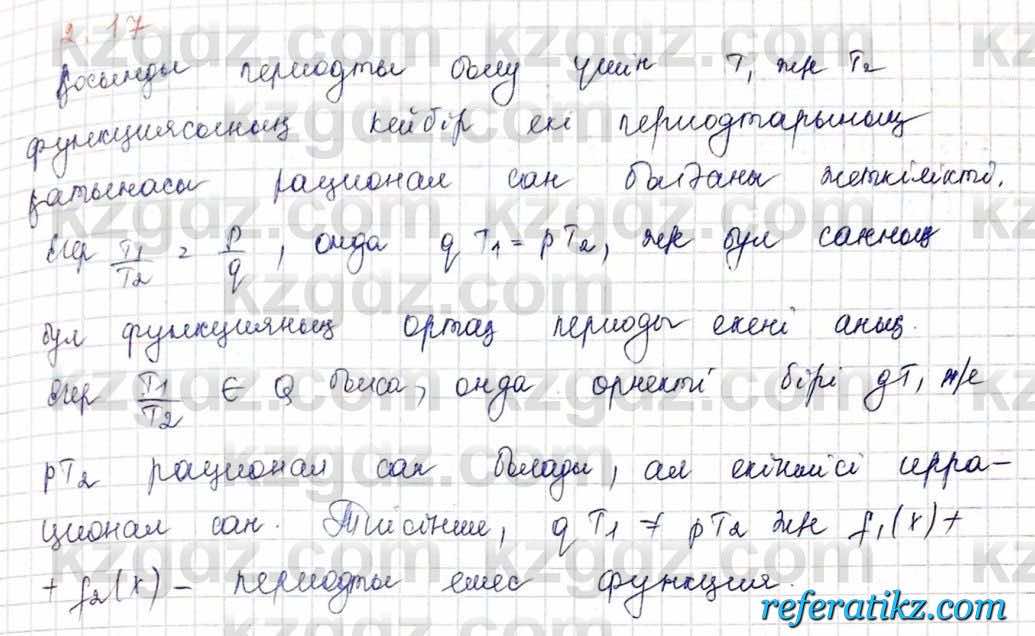 2.17
Қосынды периодты болу үшін T₁ жәк T₂
функциясының кейбір екі периодтарының
қатынасы рационал сан болғаны жеткілікті.
Егер T₁/T₂ = p/q, онда q T₁ = pT₂, жәк бұл санның
бұл функцияның ортақ периоды екені анық.
Егер T₁/T₂ ∈ Q болса, онда өрнекті бірі qT₁ ж/е
pT₂ рационал сан болады, ал екіншісі ирра-
ционал сан. Тиісінше, q T₁ ≠ pT₂ жәк f₁(x) +
+ f₂(x) – периодты емес функция.
kzgdz.com
referatikz.com